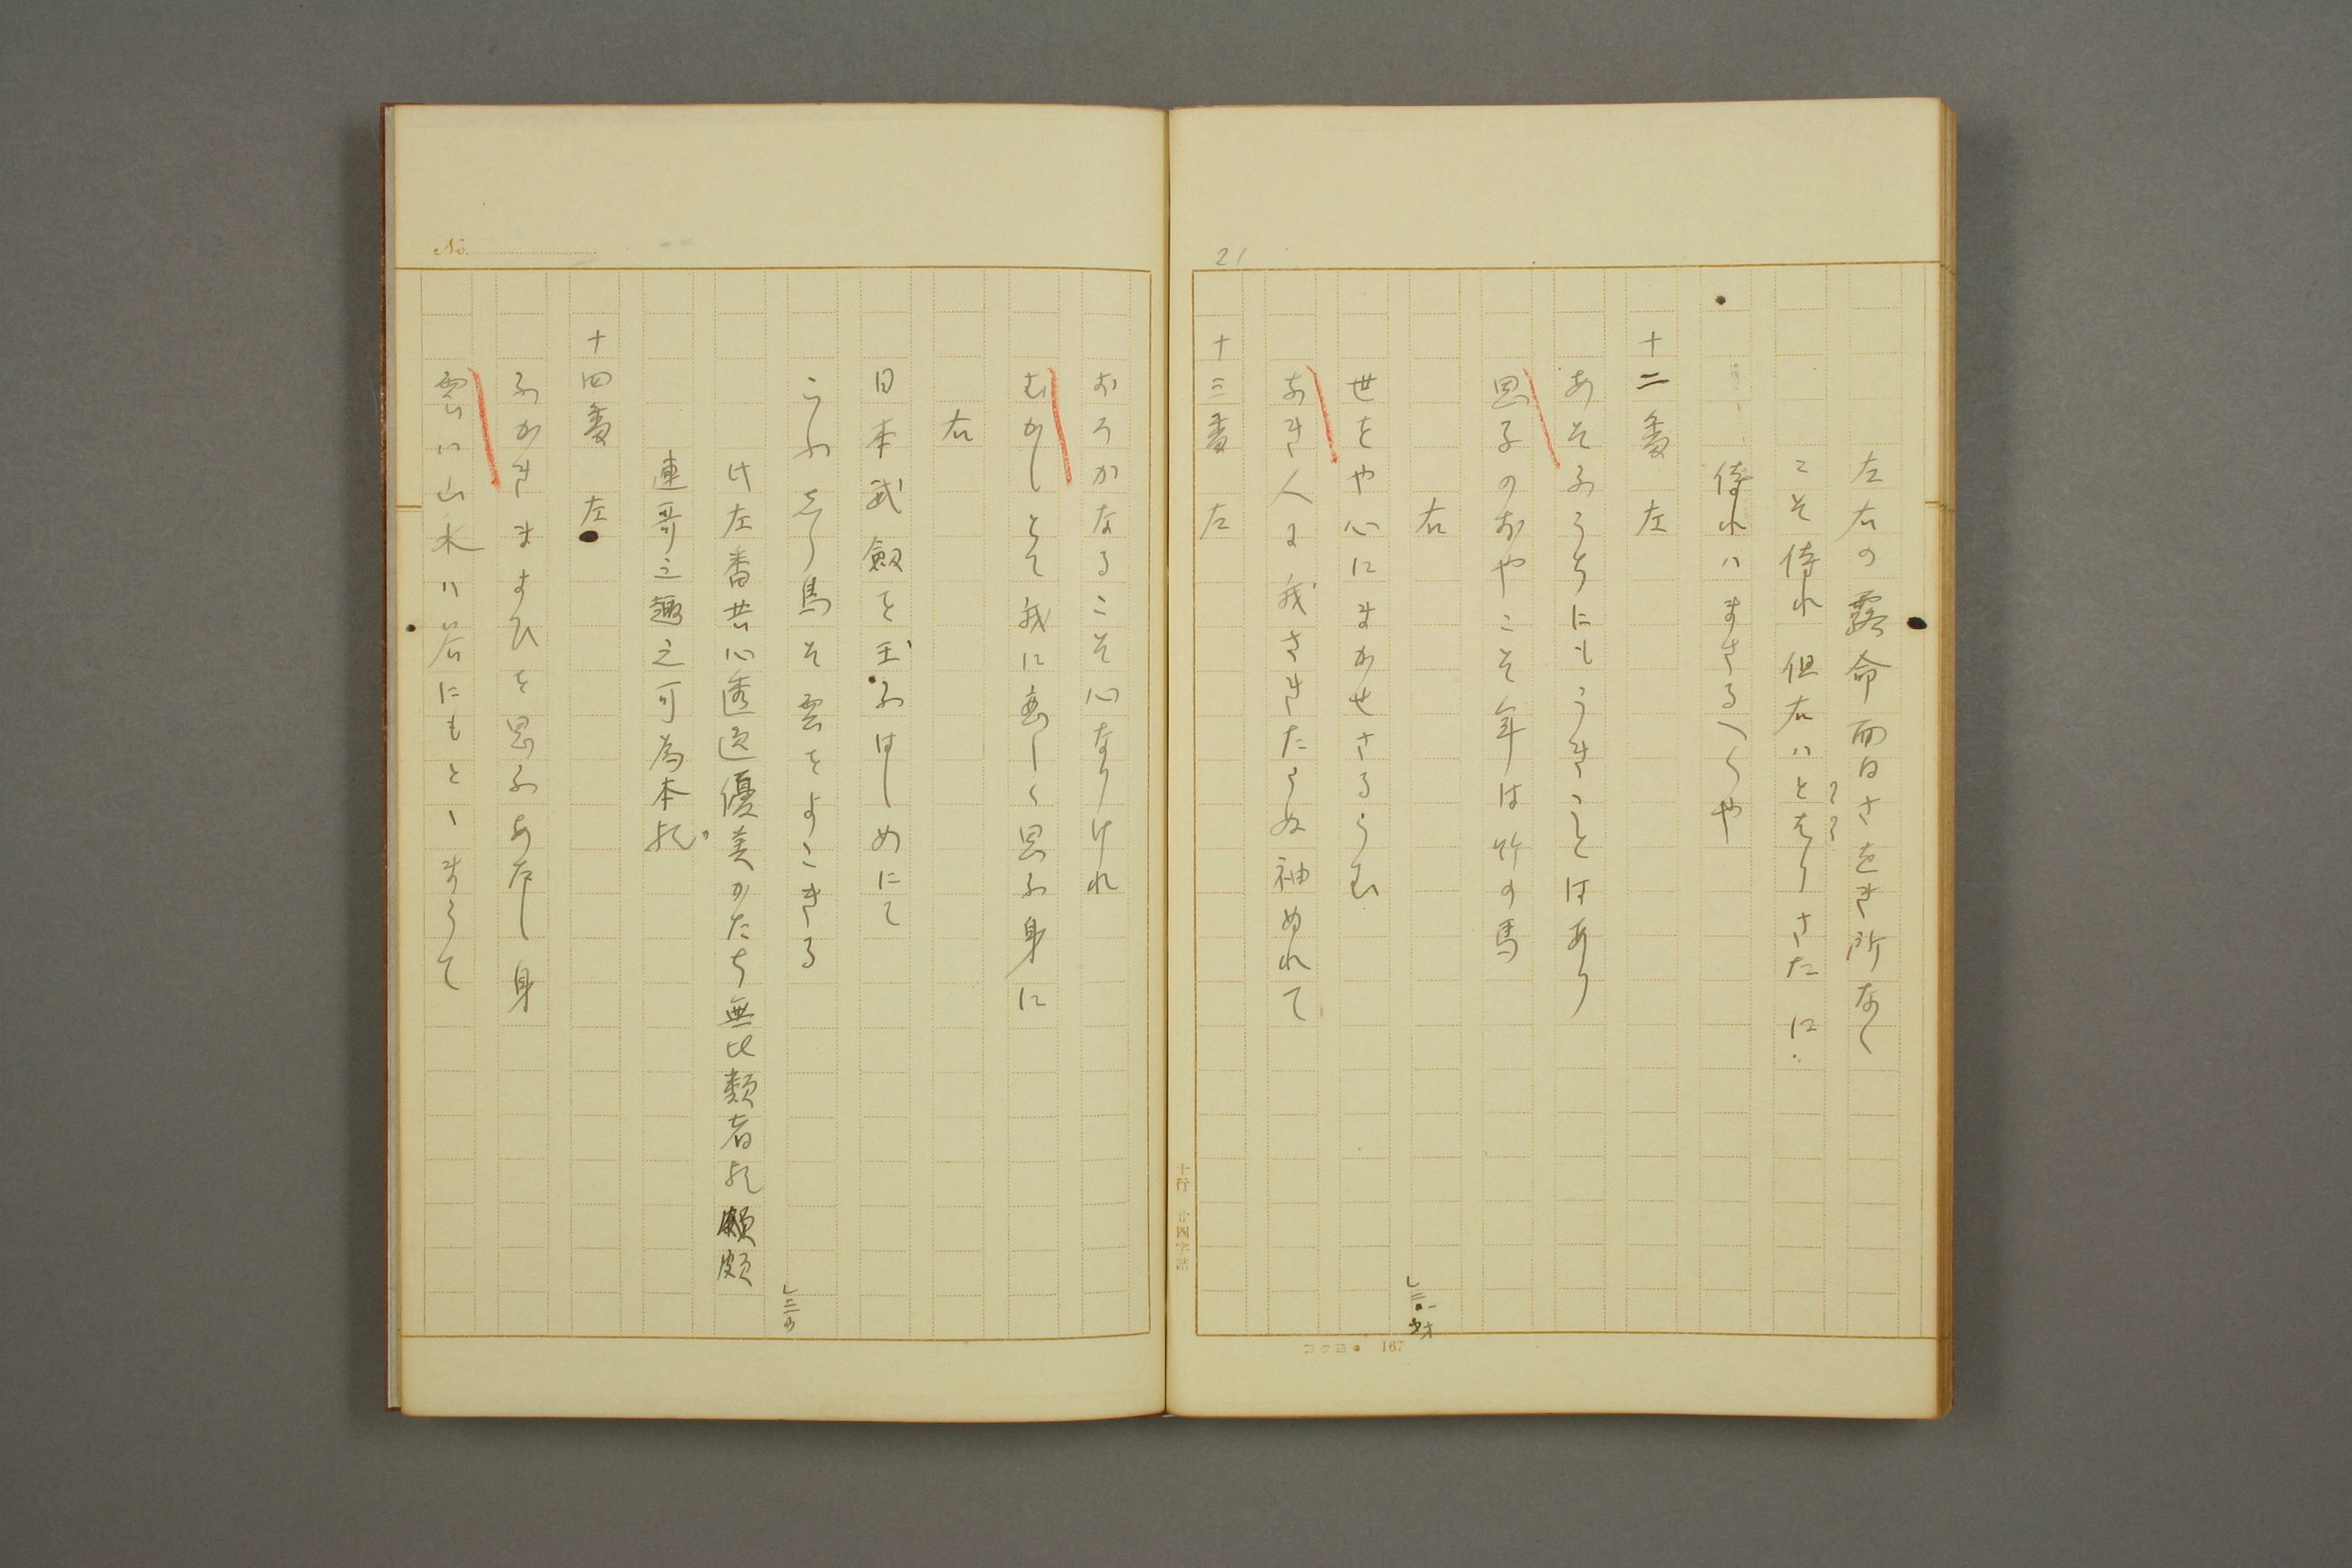 21
左右の露命面白さをき所なく
こそ侍れ但右ハとをりさたに
侍れハまさるへくや
十二番 左
あそふうちにもうきことはあり
思子のおやこそ年は竹の馬
右
世をや心にまかせさるらむ
なき人に我さきたらぬ袖ぬれて
十三番 左
十行 廿四字詰
コクヨ 167
No.
おろかなるこそ心なりけれ
むかしとて我に悲しく思ふ身に
右
日本武剱を玉ふはしめにて
こふをしゝ馬そ雲をよこきる
此左番昔心透逸優美かたち無比類者歟
連哥之趣之可為本歟
十四番 左
ふかきまよひを思ふあたし身
雲ハ山水ハ岩にもとゝまらて